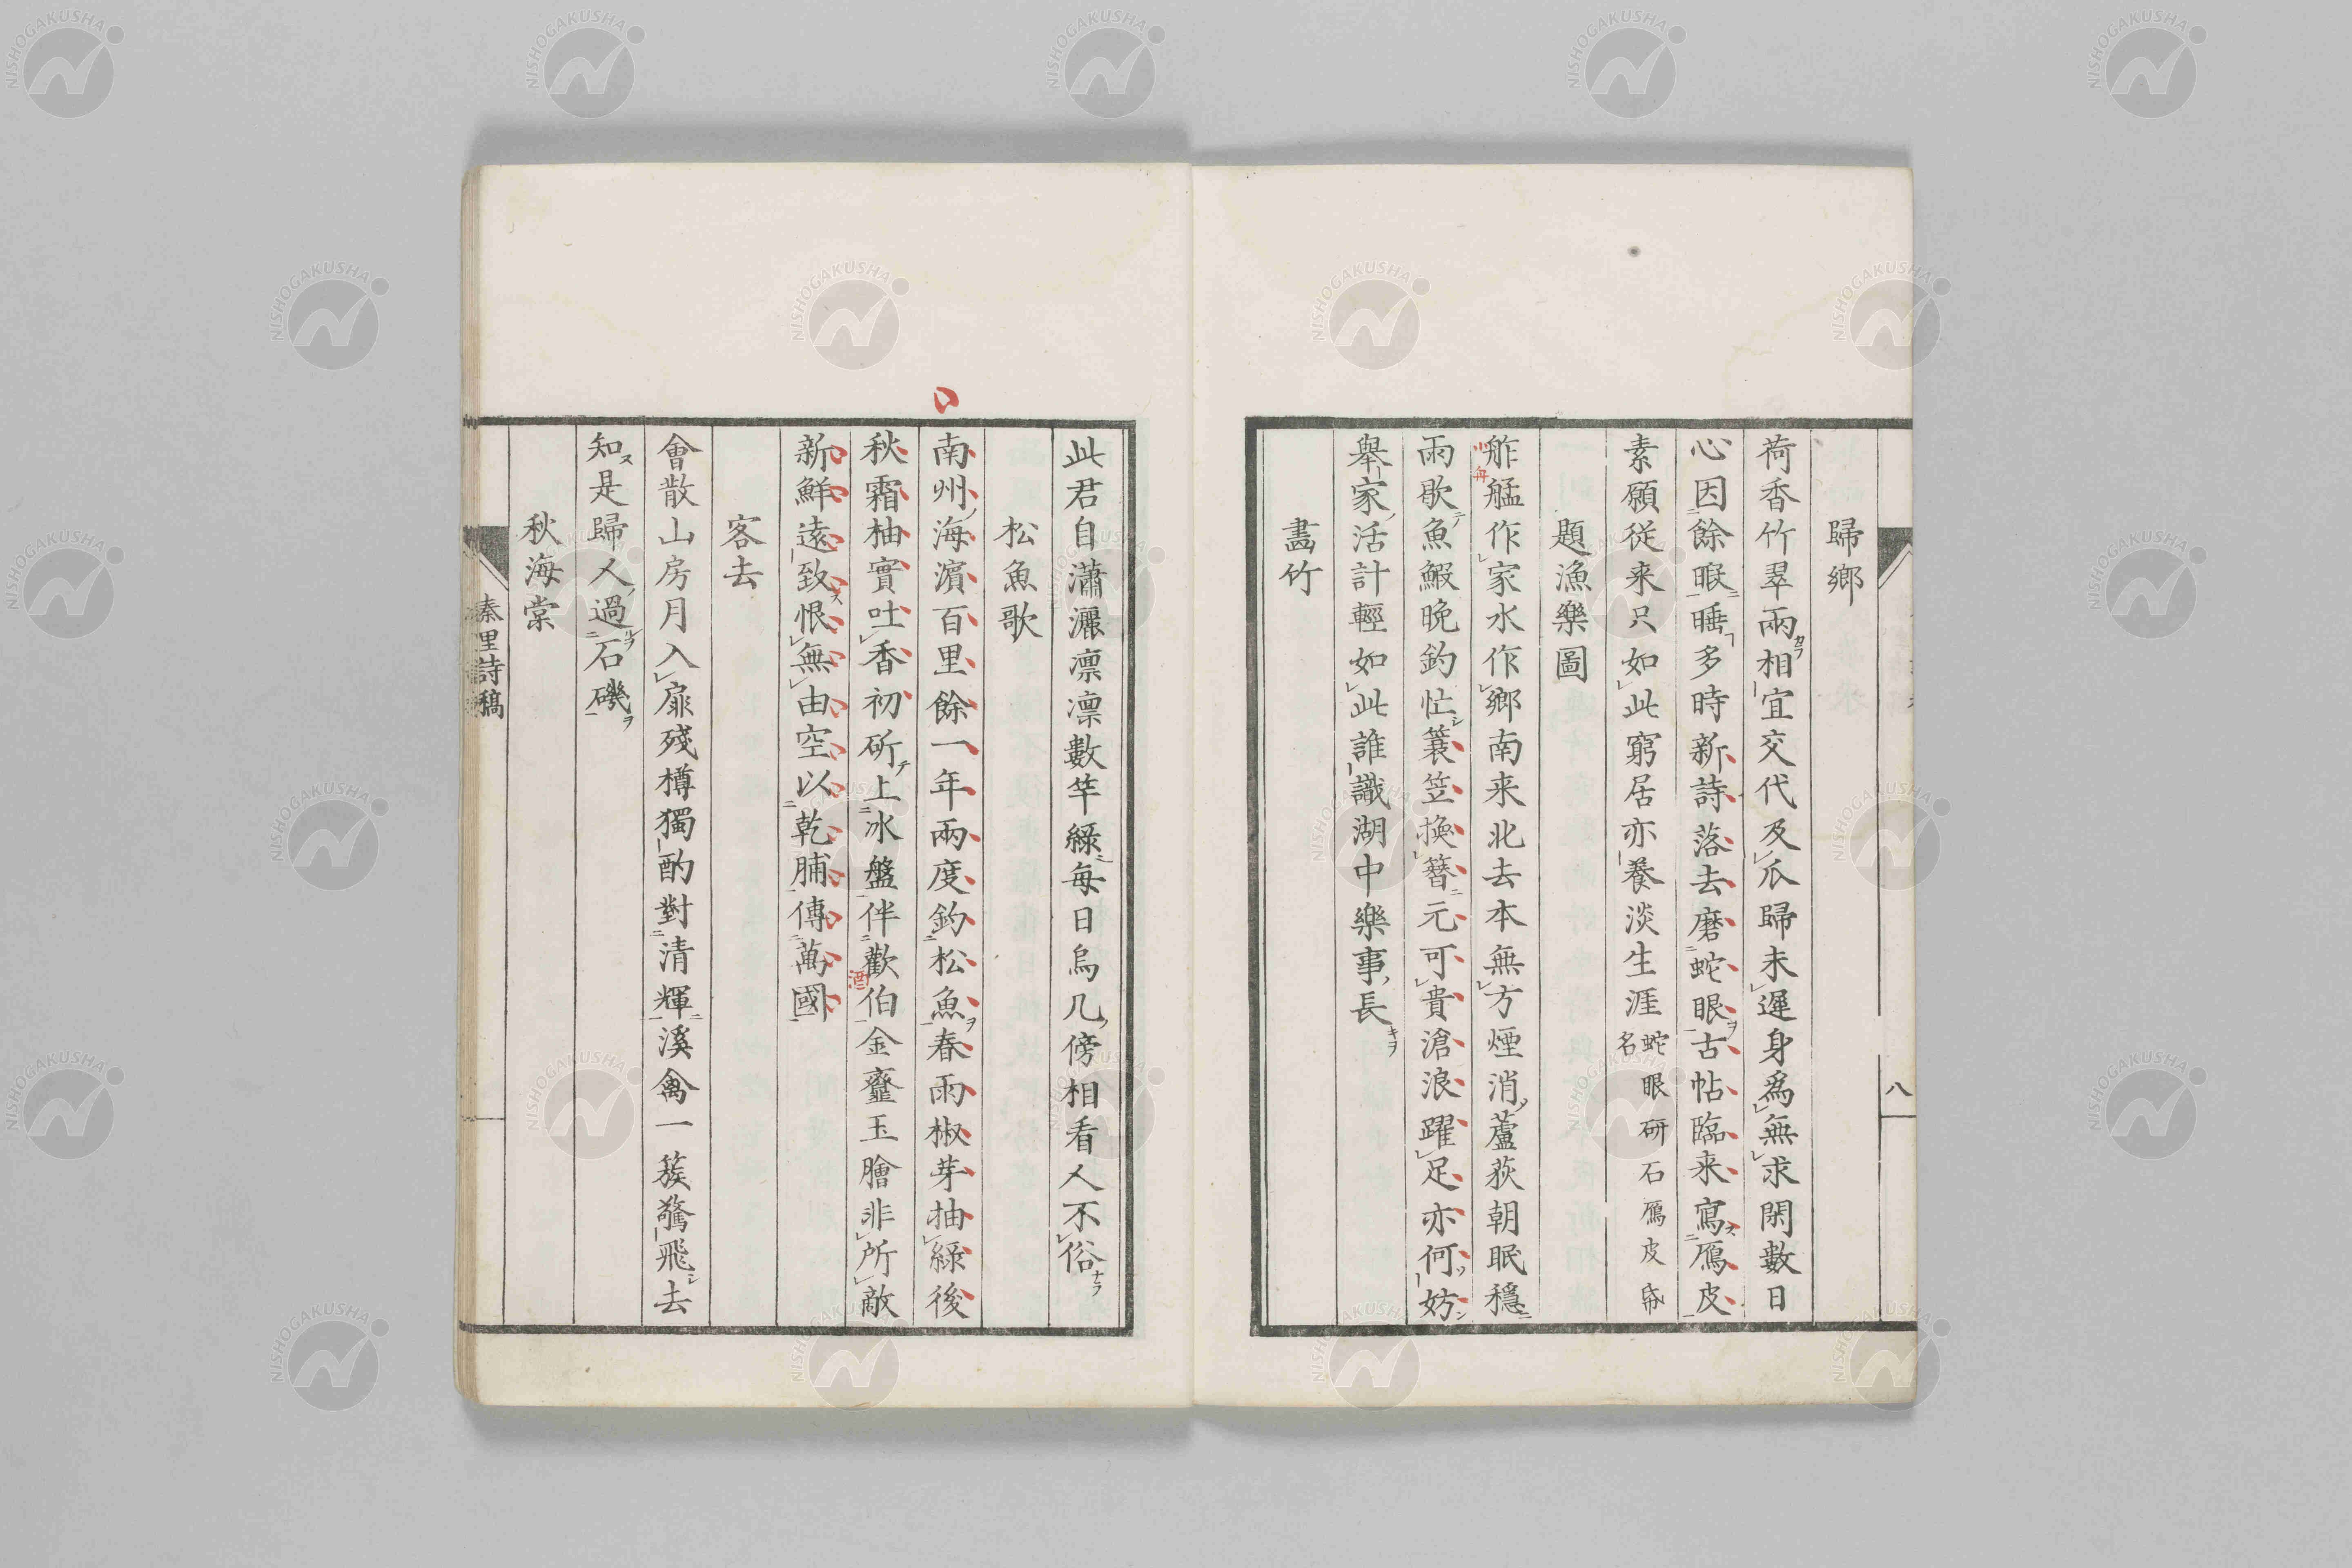 八
歸鄉
荷香竹翠兩相宜交代及瓜歸未遲身爲無求閑數日
心因餘暇睡多時新詩落去磨蛇眼古帖臨来寫鴈皮
素願従来只如此窮居亦養淡生涯 蛇眼研石鴈皮帋名
題漁樂圖
舴艋作家水作鄉南来北去本無方煙消蘆荻朝眠穩
小舟
雨歇魚鰕晩釣忙蓑笠換簪元可貴滄浪躍足亦何妨
舉家活計輕如此誰識湖中樂事長
畵竹
此君自瀟灑凛凛數竿綠每日烏几傍相看人不俗
松魚歌
南州海濵百里餘一年兩度釣松魚春雨椒芽抽綠後
秋霜柚實吐香初斫上冰盤伴歡伯金虀玉膾非所敵
酒
新鮮遠致恨無由空以乾脯傳萬國
客去
會散山房月入扉殘樽獨酌對清輝溪禽一簇驚飛去
知是歸人過石磯
秋海棠
秦里詩稿
NISHOGAKUSHA